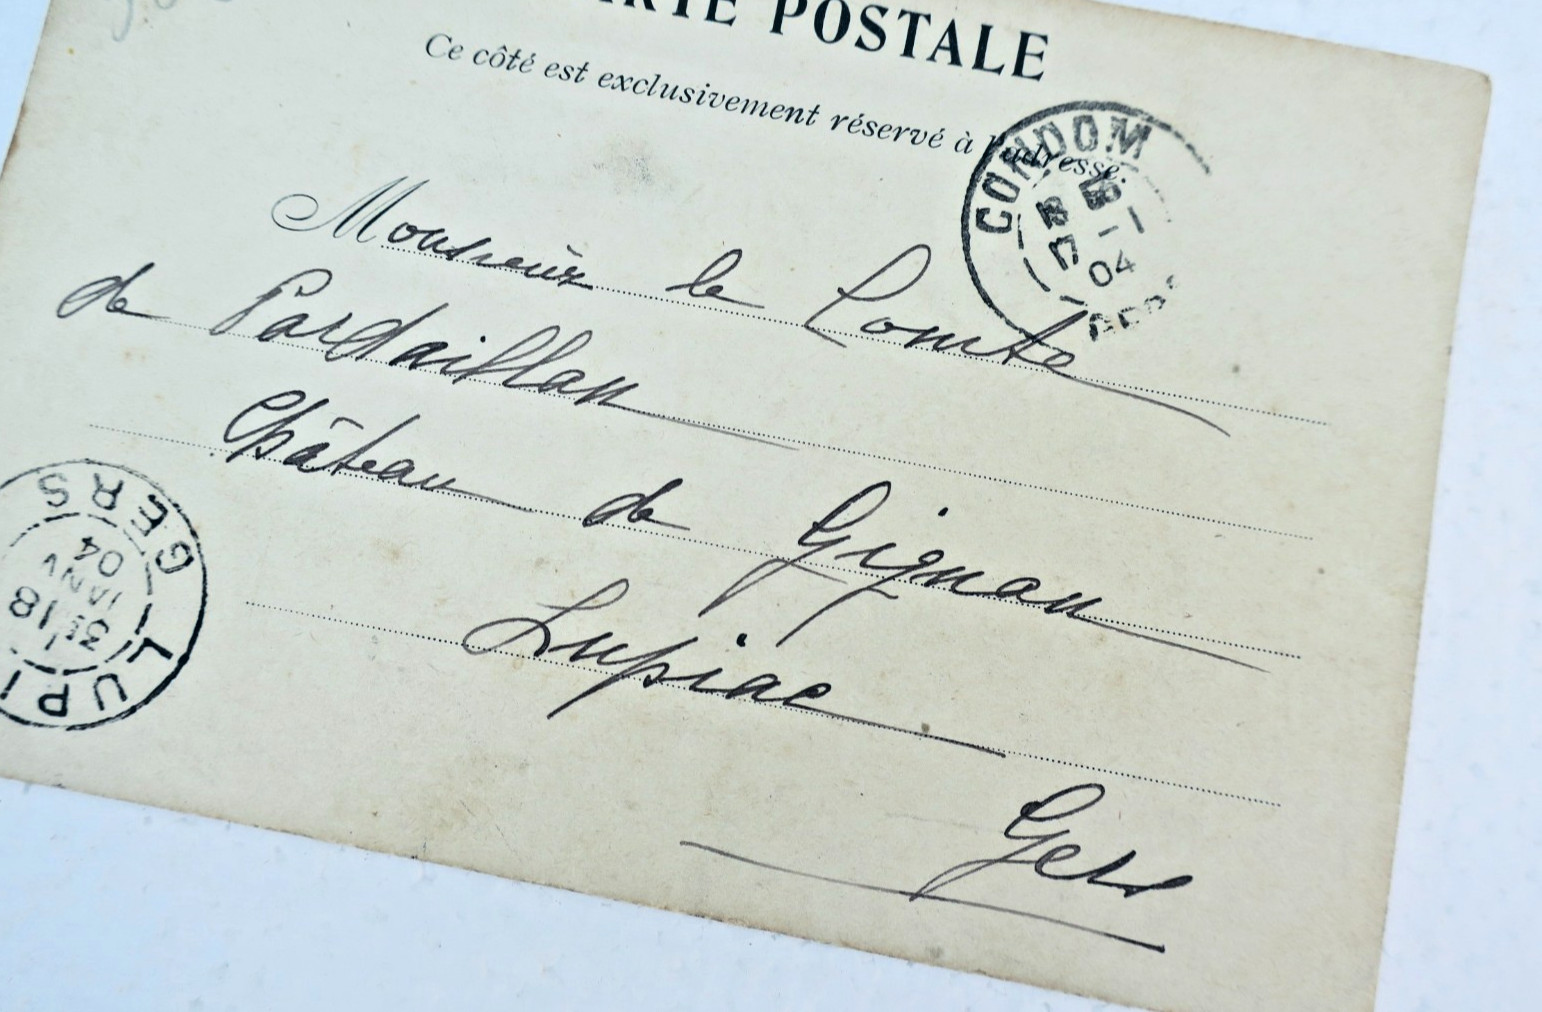 CARTE POSTALE
Ce côté est exclusivement réservé à l'adresse.
CONDOM
17 -1
04
GERS
Monsieur le Comte
de Pardaillan
Château de Gignan
Lupiac
Gers
LUPI
GERS
18
JANV
04